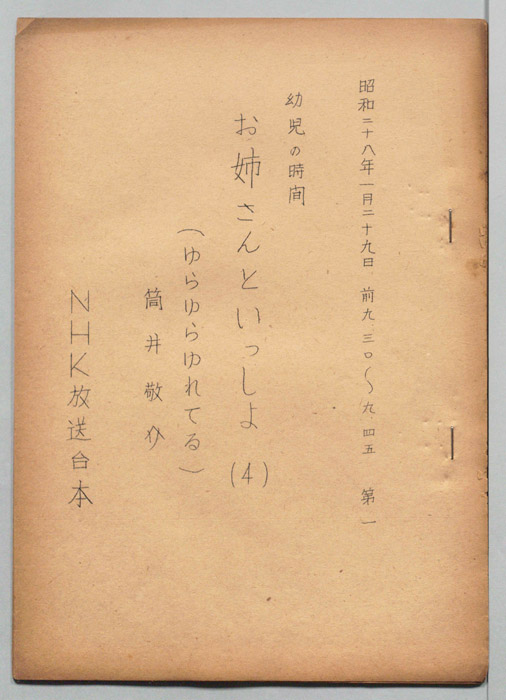 昭和二十八年一月二十九日 前九三〇〜九四五 第一
幼児の時間
お姉さんといっしよ(4)
(ゆらゆらゆれてる)
筒井敬介
NHK放送台本